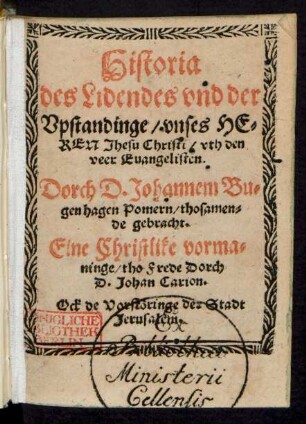 Historia
des Lidendes vnd der
Vpstandinge / vnses HE-
REN Jhesu Christi vth den
veer Euangelisten.
Dorch D. Johannem Bu-
genhagen Pomern / thosamen-
de gebracht.
Eine Christlike vorma-
ninge / tho Frede Dorch
D. Johan Carion.
Ock de Vorstöringe der Stadt
Jerusalem.
Ex
Bibliotheca
Ministerii
Cellensis